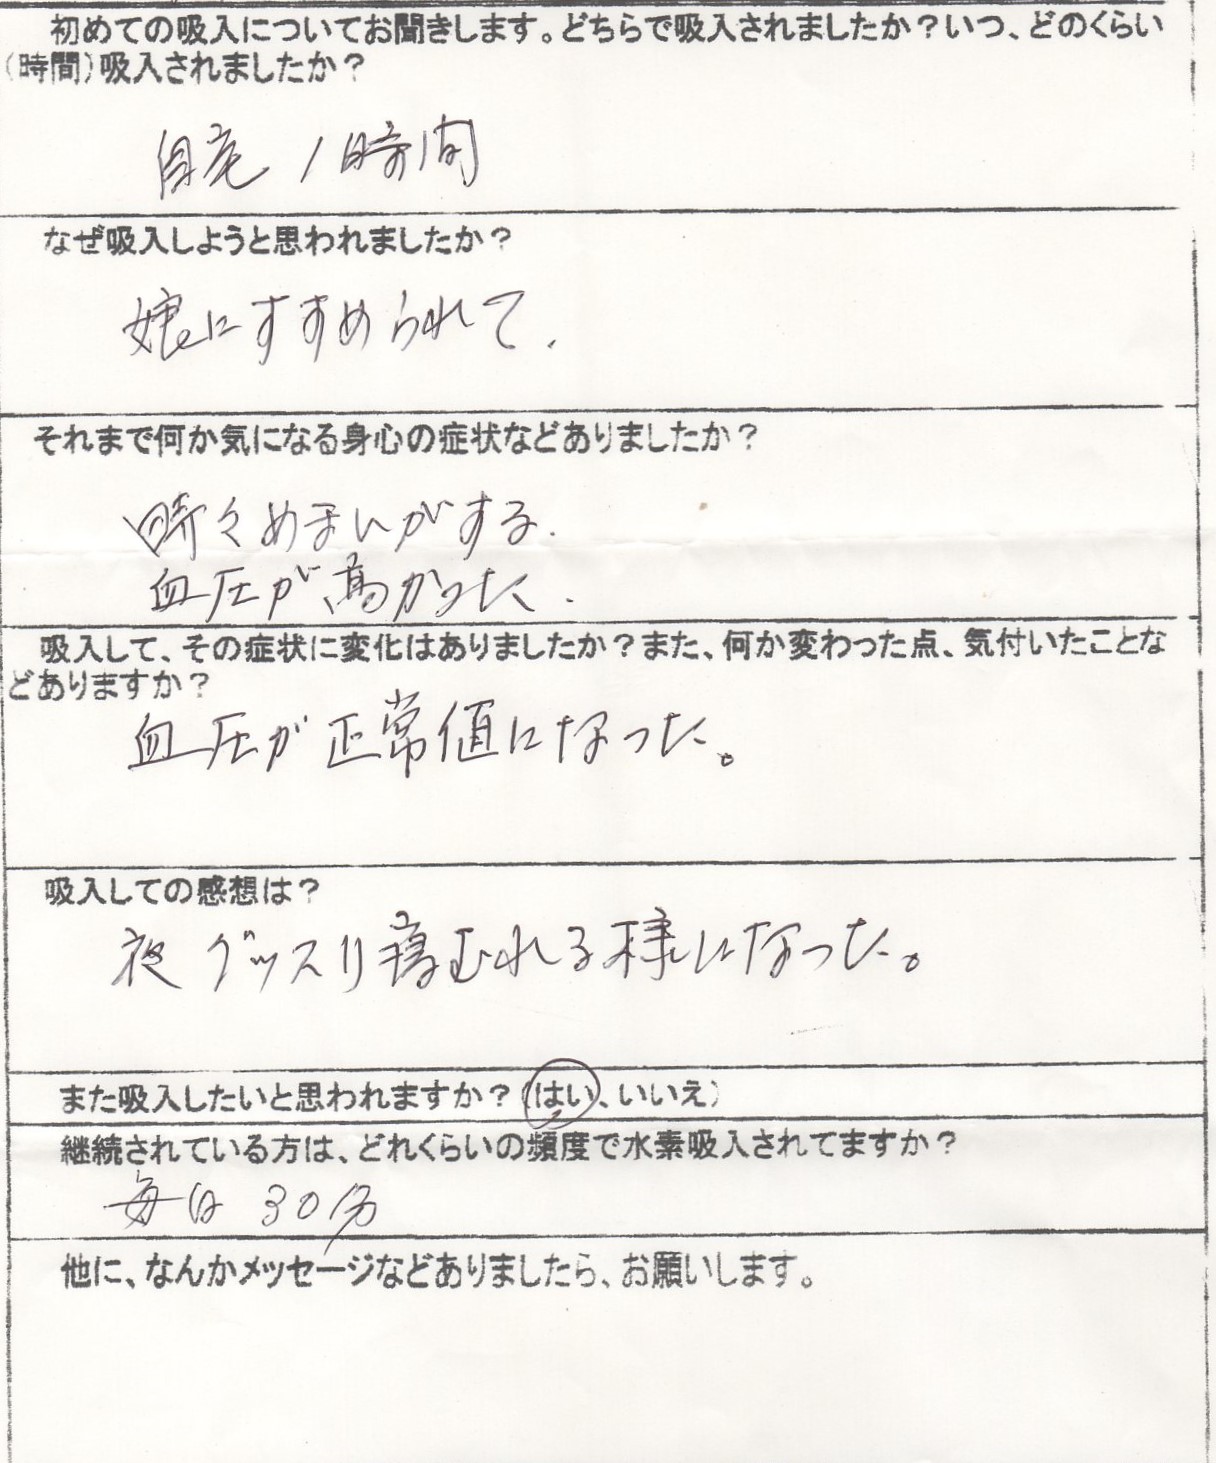 初めての吸入についてお聞きします。どちらで吸入されましたか？いつ、どのくらい
（時間）吸入されましたか？
自宅 1時間
なぜ吸入しようと思われましたか？
娘にすすめられて.
それまで何か気になる身心の症状などありましたか？
時々めまいがする.
血圧が高かった.
吸入して、その症状に変化はありましたか？また、何か変わった点、気付いたことな
どありますか？
血圧が正常値になった。
吸入しての感想は？
夜グッスリ寝むれる様になった。
また吸入したいと思われますか？（はい、いいえ）
継続されている方は、どれくらいの頻度で水素吸入されてますか？
毎日 30分
他に、なんかメッセージなどありましたら、お願いします。